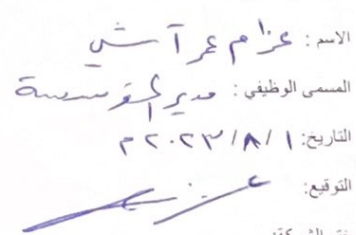 الاسم: عزام عمر آشي
المسمى الوظيفي: مدير المؤسسة
التاريخ: ٢٠٢٣/٨/١م
التوقيع: